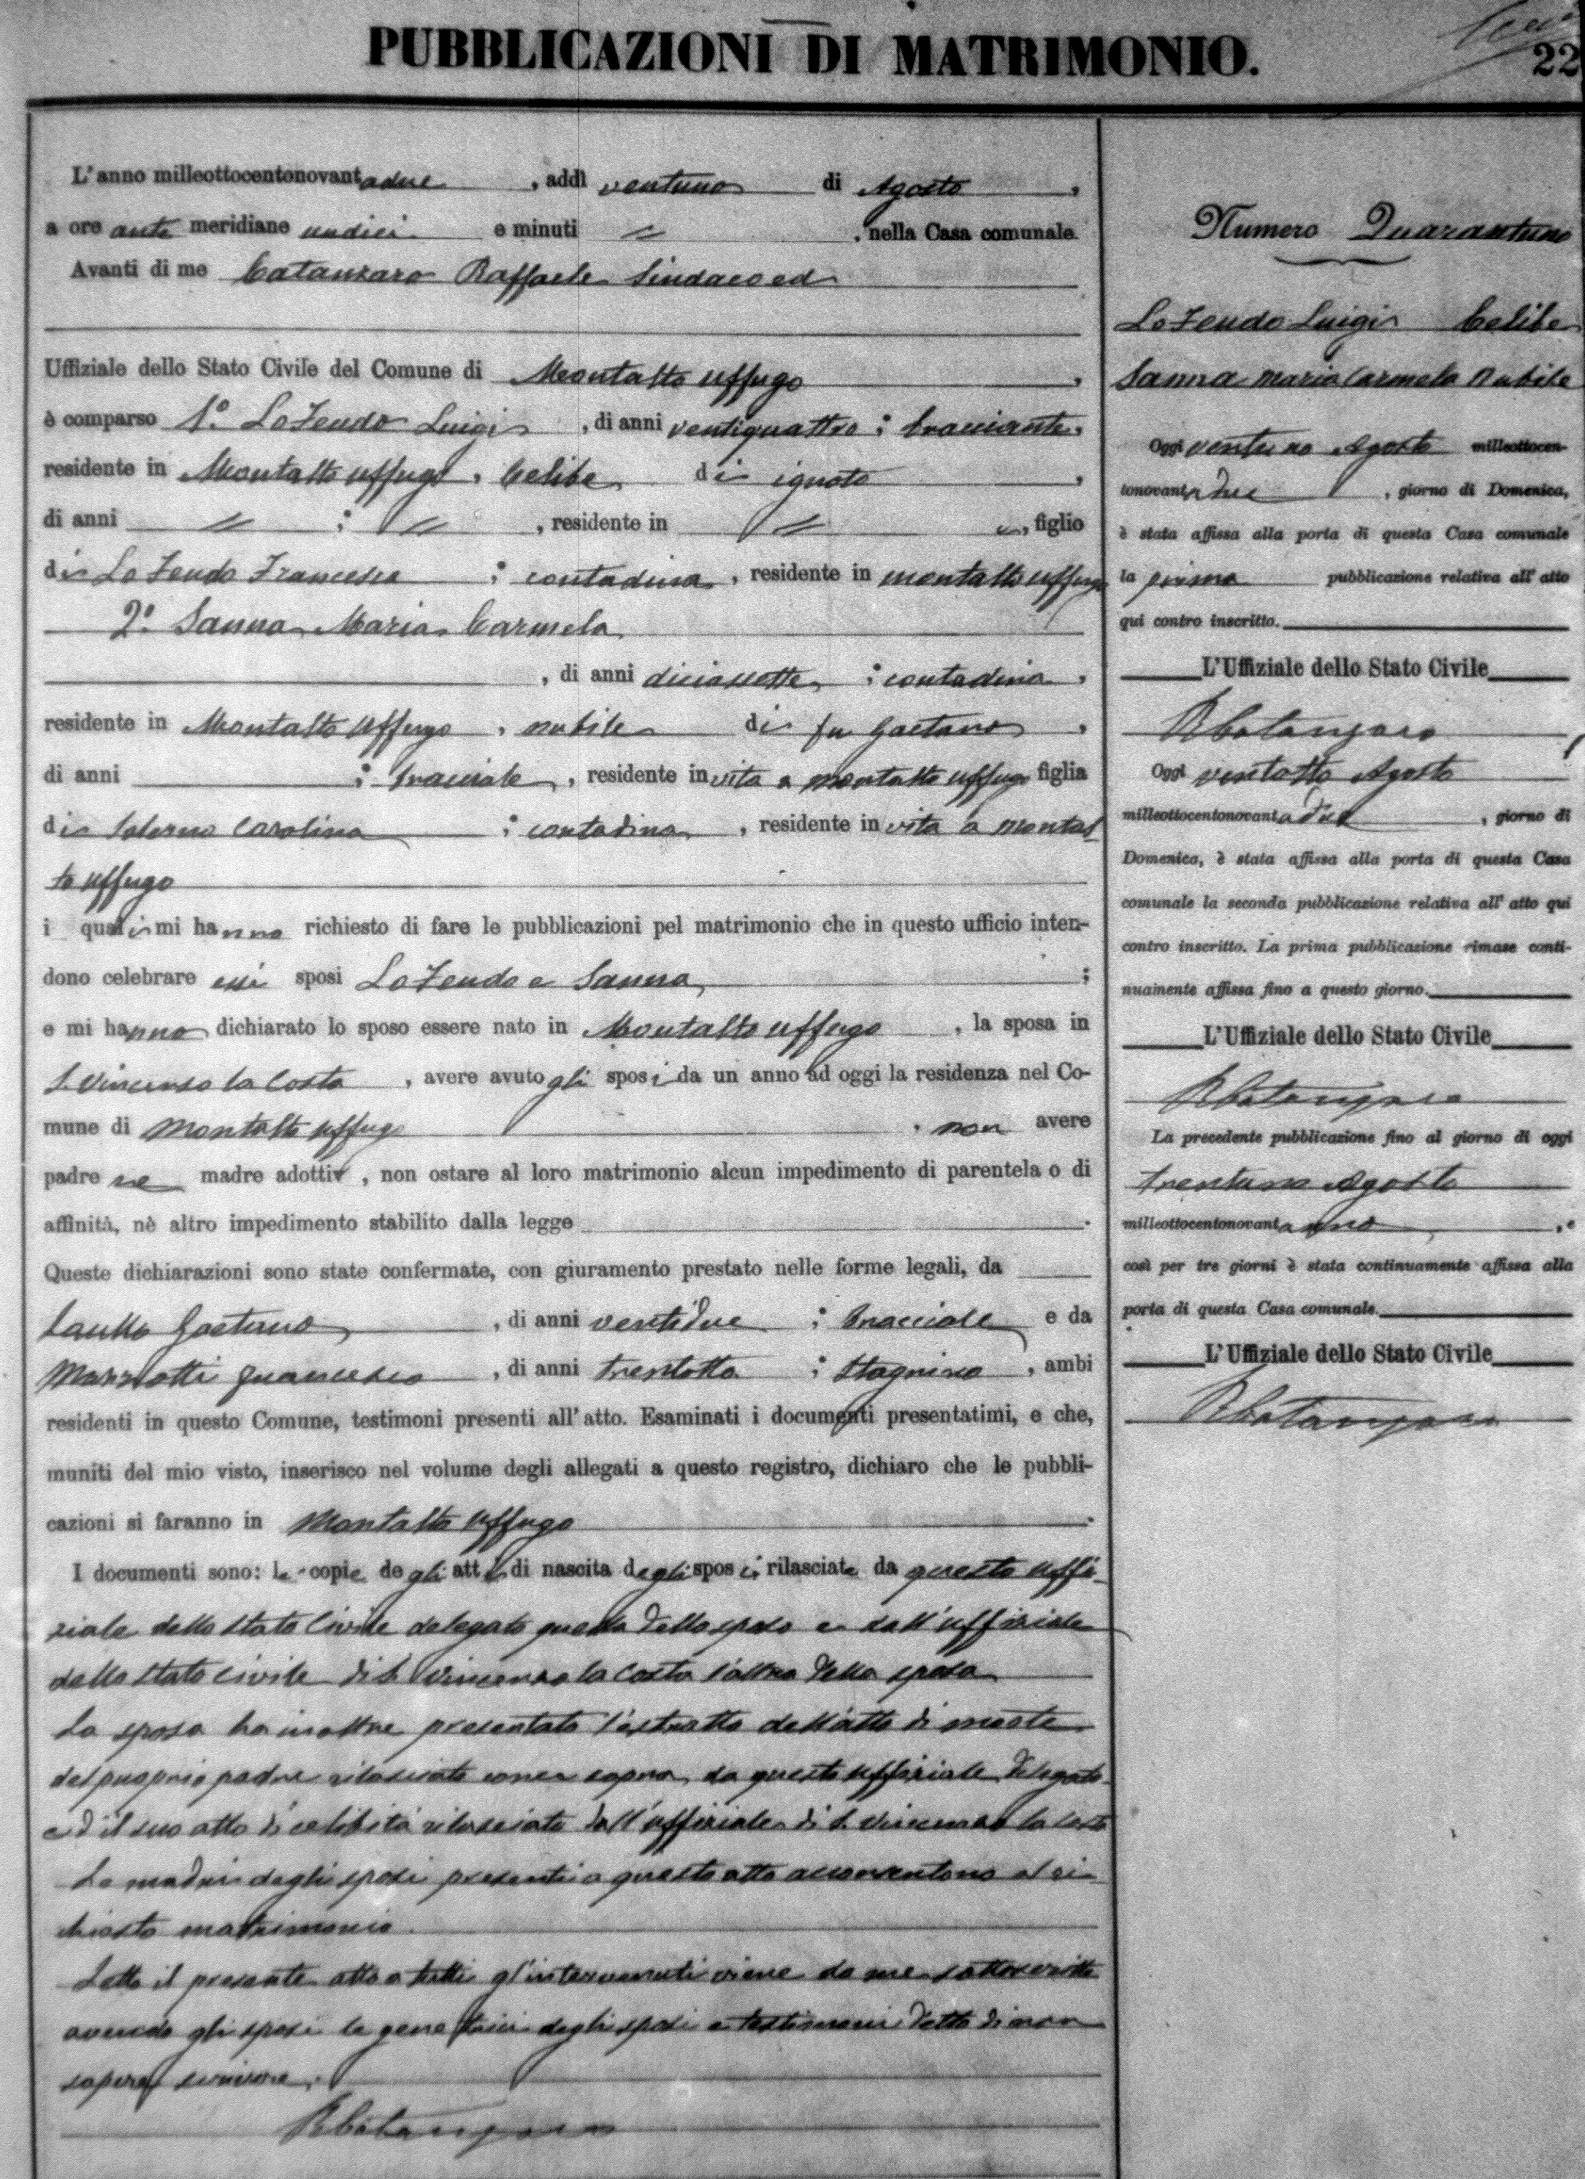 PUBBLICAZIONI DI MATRIMONIO.
22
L'anno milleottocentonovantadue, addì ventuno di Agosto,
a ore ante meridiane undici e minuti =, nella Casa comunale.
Avanti di me Catanzaro Raffaele Sindaco ed
Uffiziale dello Stato Civile del Comune di Montalto Uffugo,
è comparso 1º. Lo Feudo Luigi, di anni ventiquattro; bracciante,
residente in Montalto Uffugo, Celibe di ignoto,
di anni =; =, residente in =, figlio
di Lo Feudo Francesca; contadina, residente in Montalto Uffugo
2º. Sanna Maria Carmela
, di anni diciassette; contadina,
residente in Montalto Uffugo, nubile di fu Gaetano,
di anni ; bracciale, residente in vita a Montalto Uffugo figlia
di Salerno Carolina; contadina, residente in vita a Montal
to Uffugo
i quali mi hanno richiesto di fare le pubblicazioni pel matrimonio che in questo ufficio inten-
dono celebrare essi sposi Lo Feudo e Sanna;
e mi hanno dichiarato lo sposo essere nato in Montalto Uffugo, la sposa in
S. Vincenzo la Costa, avere avuto gli sposi da un anno ad oggi la residenza nel Co-
mune di Montalto Uffugo, non avere
padre ne madre adottiv, non ostare al loro matrimonio alcun impedimento di parentela o di
affinità, nè altro impedimento stabilito dalla legge.
Queste dichiarazioni sono state confermate, con giuramento prestato nelle forme legali, da
Gaetano, di anni ventidue; bracciale e da
Mazzotti Francesco, di anni trentotto; Stagnino, ambi
residenti in questo Comune, testimoni presenti all'atto. Esaminati i documenti presentatimi, e che,
muniti del mio visto, inserisco nel volume degli allegati a questo registro, dichiaro che le pubbli-
cazioni si faranno in Montalto Uffugo.
I documenti sono: le copie degli atti di nascita degli sposi rilasciate da questo uffi-
ziale dello stato civile delegato quella dello sposo e dall'uffiziale
dello stato civile di S. Vincenzo la Costa l'altra della sposa
La sposa ha inoltre presentato l'estratto dell'atto di morte
del proprio padre rilasciato come sopra da questo uffiziale delegato
ed il suo atto di celibità rilasciato dall'uffiziale di S. Vincenzo la Costa
Le madri degli sposi presenti a questo atto acconsentono al ri-
chiesto matrimonio.
Letto il presente atto a tutti gl'intervenuti viene da me sottoscritto
avendo gli sposi le genetrici degli sposi e testimoni detto di non
sapere scrivere.
RCatanzaro
Numero Quarantuno
Lo Feudo Luigi Celibe
Sanna Maria Carmela Nubile
Oggi ventuno Agosto milleottocen-
tonovantadue, giorno di Domenica,
è stata affissa alla porta di questa Casa comunale
la prima pubblicazione relativa all'atto
qui contro inscritto.
L'Uffiziale dello Stato Civile
RCatanzaro
Oggi ventotto Agosto
milleottocentonovantadue, giorno di
Domenica, è stata affissa alla porta di questa Casa
comunale la seconda pubblicazione relativa all'atto qui
contro inscritto. La prima pubblicazione rimase conti-
nuamente affissa fino a questo giorno.
L'Uffiziale dello Stato Civile
RCatanzaro
La precedente pubblicazione fino al giorno di oggi
trentuno Agosto
milleottocentonovant, e
così per tre giorni è stata continuamente affissa alla
porta di questa Casa comunale.
L'Uffiziale dello Stato Civile
RCatanzaro